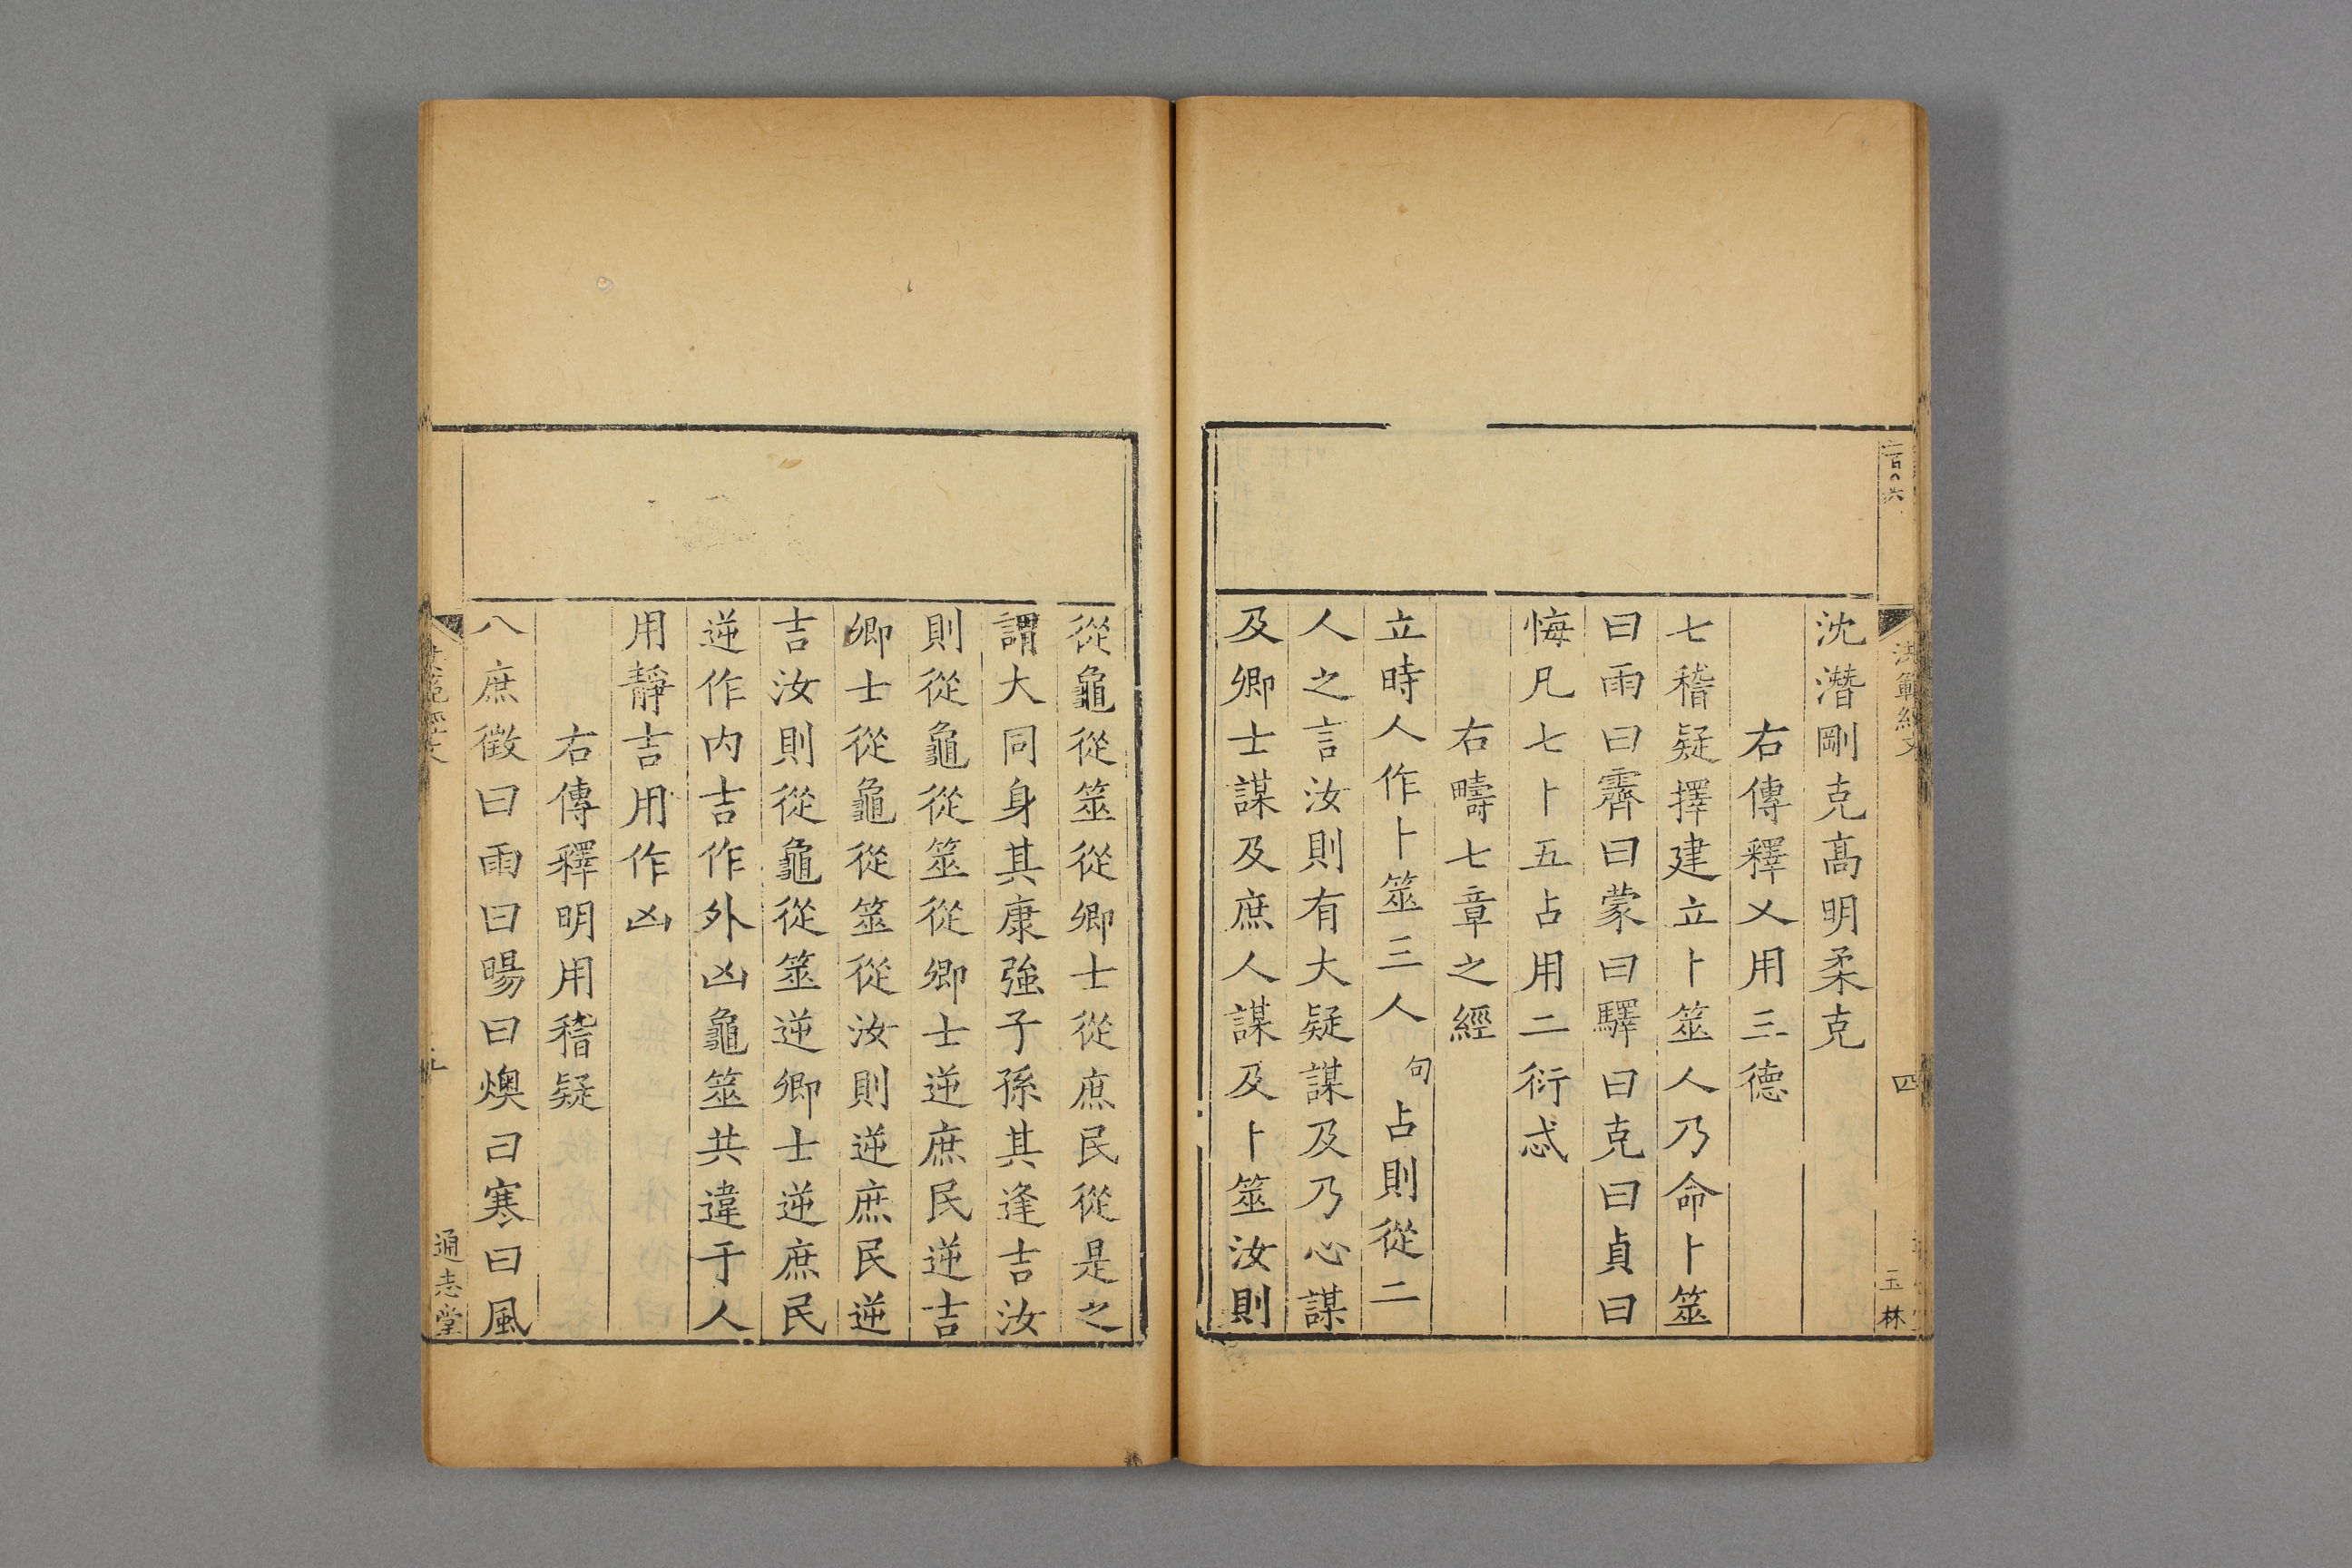 沈潛剛克高明柔克
右傳釋乂用三德
七稽疑擇建立卜筮人乃命卜筮
曰雨曰霽曰蒙曰驛曰克曰貞曰
悔凡七卜五占用二衍忒
右疇七章之經
立時人作卜筮三人句占則從二
人之言汝則有大疑謀及乃心謀
及卿士謀及庶人謀及卜筮汝則
從龜從筮從卿士從庶民從是之
謂大同身其康強子孫其逢吉汝
則從龜從筮從卿士逆庶民逆吉
卿士從龜從筮從汝則逆庶民逆
吉汝則從龜從筮逆卿士逆庶民
逆作内吉作外凶龜筮共違于人
用靜吉用作凶
右傳釋明用稽疑
八庶徵曰雨曰暘曰燠曰寒曰風
洪範經文
四
玉林
通志堂